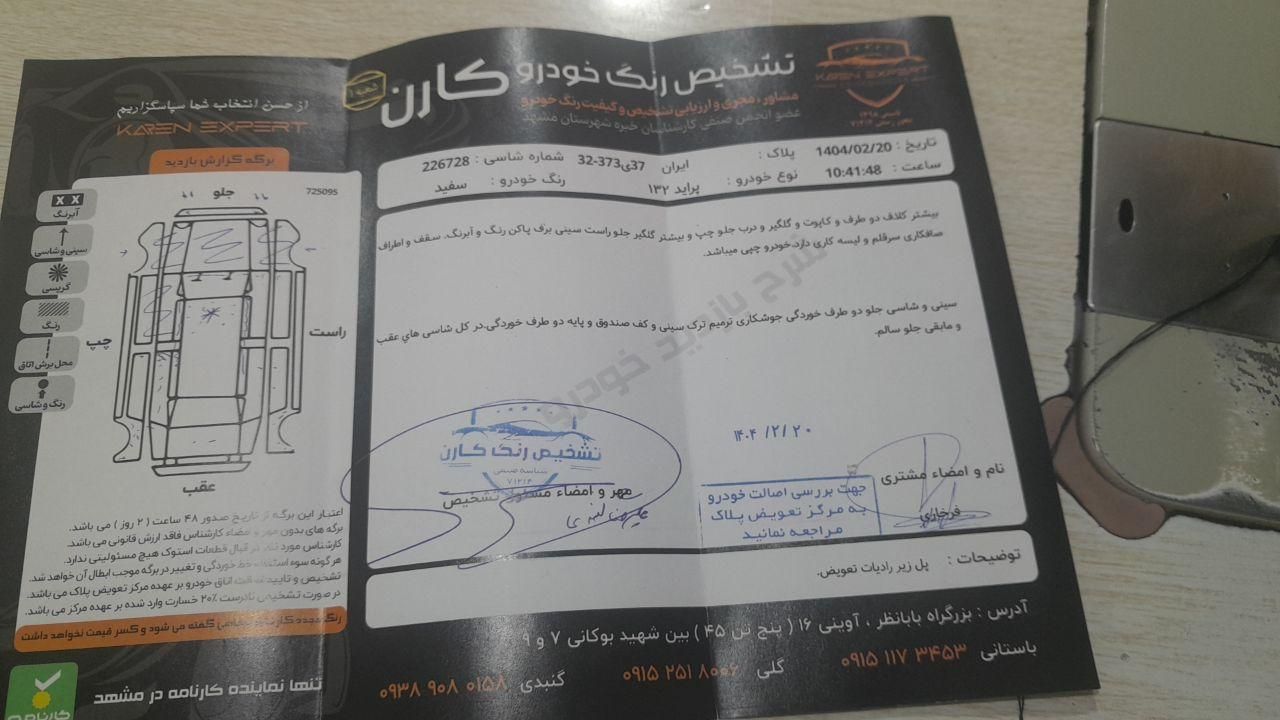 تشخیص رنگ خودرو کارن
شعبه ۱
مشاور، مجری و ارزیابی تشخیص و کیفیت رنگ خودرو
عضو انجمن صنفی کارشناسان خبره شهرستان مشهد
KAREN EXPERT
تاریخ : 1404/02/20 پلاک : ایران 37ی373-32 شماره شاسی : 226728
ساعت : 10:41:48 نوع خودرو : پراید ۱۳۲ رنگ خودرو : سفید
بیشتر کلاف دو طرف و کاپوت و گلگیر و درب جلو چپ و بیشتر گلگیر جلو راست سینی برف پاکن رنگ و آبرنگ. سقف و اطراف
صافکاری سرقلم و لیسه کاری دارد.خودرو چپی میباشد.
سینی و شاسی جلو دو طرف خوردگی جوشکاری ترمیم ترک سینی و کف صندوق و پایه دو طرف خوردگی.در کل شاسی های عقب
و مابقی جلو سالم.
شرح بازدید خودرو
نام و امضاء مشتری
فرخاری
۱۴۰۴/۲/۲۰
جهت بررسی اصالت خودرو
به مرکز تعویض پلاک
مراجعه نمائید
تشخیص رنگ کارن
شناسه صنفی
۷۱۲۱۴
مهر و امضاء مسئول تشخیص
توضیحات : پل زیر رادیات تعویض.
آدرس : بزرگراه بابانظر ، آوینی ۱۶ ( پنج تن ۴۵ ) بین شهید بوکانی ۷ و ۹
باستانی ۰۹۱۵ ۱۱۷ ۳۴۵۳ گلی ۰۹۱۵ ۲۵۱ ۸۰۰۶ گنبدی ۰۹۳۸ ۹۰۸ ۰۱۵۸
از حسن انتخاب شما سپاسگزاریم
KAREN EXPERT
برگه گزارش بازدید
725095
جلو
راست
چپ
عقب
X X
آبرنگ
سینی و شاسی
گریسی
رنگ
محل برش اتاق
رنگ و شاسی
اعتبار این برگه از تاریخ صدور ۴۸ ساعت ( ۲ روز ) می باشد.
برگه های بدون مهر و امضاء کارشناس فاقد ارزش قانونی می باشد.
کارشناس مورد نقد در قبال قطعات استوک هیچ مسئولیتی ندارد.
هر گونه سوء استفاده خط خوردگی و تغییر در برگه موجب ابطال آن خواهد شد.
تشخیص و تایید اصالت اتاق خودرو بر عهده مرکز تعویض پلاک می باشد.
در صورت تشخیص نادرست ۲۰% خسارت وارد شده بر عهده مرکز می باشد.
رنگ مجدد کارخانه شفاهی گفته می شود و کسر قیمت نخواهد داشت
تنها نماینده کارنامه در مشهد
کارنامه